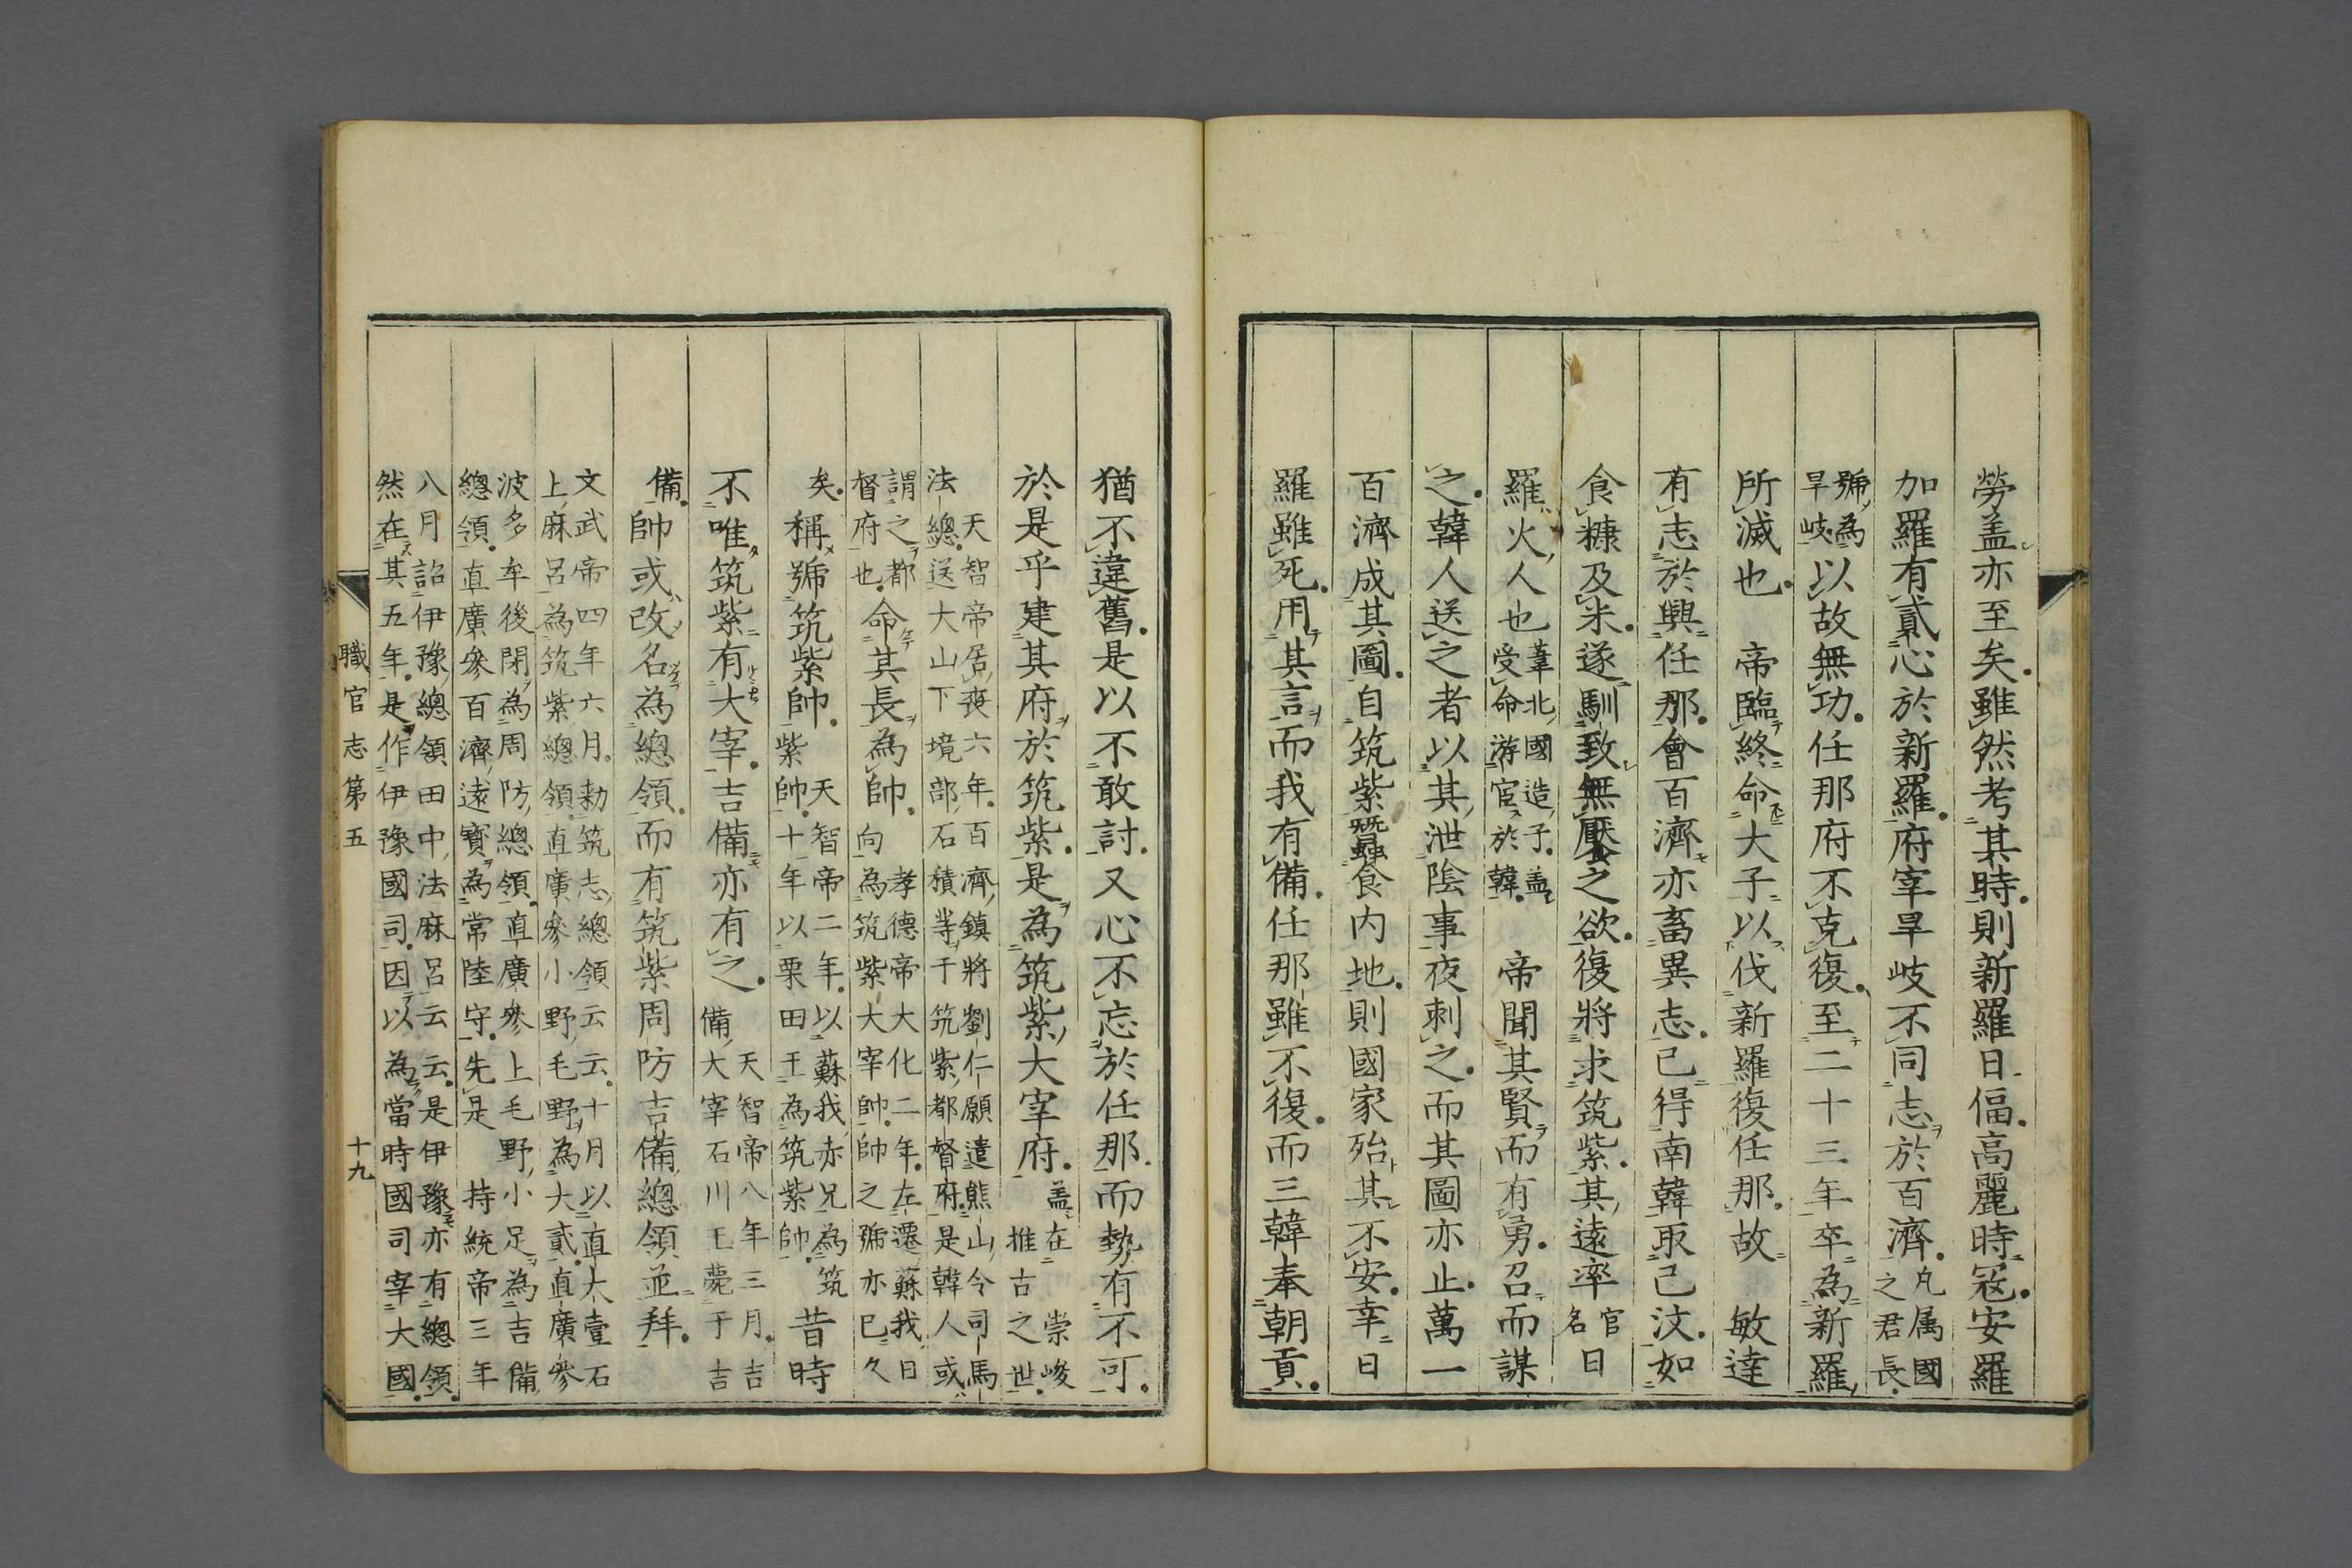 勞盖亦至矣雖然考其時則新羅日偪高麗時寇安羅
加羅有貳心於新羅府宰旱岐不同志於百濟凡属國之君長
號為旱岐以故無功任那府不克復至二十三年卒為新羅
所滅也　帝臨終命大子以伐新羅復任那故　敏達
有志於興任那會百濟亦畜異志已得南韓取己汶如
食糠及米遂馴致無厭之欲復將求筑紫其遠率官名日
羅火人也葦北國造子盖受命游宦於韓　帝聞其賢而有勇召而謀
之韓人送之者以其泄陰事夜刺之而其圖亦止萬一
百濟成其圖自筑紫蠶食内地則國家殆其不安幸日
羅雖死用其言而我有備任那雖不復而三韓奉朝貢
猶不違舊是以不敢討又心不忘於任那而勢有不可
於是乎建其府於筑紫是為筑紫大宰府盖在　崇峻推古之世
天智帝居喪六年百濟鎮將劉仁願遣熊山令司馬法總送大山下境部石積等于筑紫都督府是韓人或
謂之都督府也命其長為帥孝德帝大化二年左遷蘇我日向為筑紫大宰帥帥之號亦已久
矣稱號筑紫帥天智帝二年以蘇我赤兄為筑紫帥十年以栗田王為筑紫帥昔時
不唯筑紫有大宰吉備亦有之天智帝八年三月吉備大宰石川王薨于吉
備帥或改名為總領而有筑紫周防吉備總領並拜
文武帝四年六月勅筑志總領云云十月以直大壹石上麻呂為筑紫總領直廣參小野毛野為大貳直廣參
波多牟後閇為周防總領直廣參上毛野小足為吉備總領直廣參百濟遠寶為常陸守先是　持統帝三年
八月詔伊豫總領田中法麻呂云云是伊豫亦有總領然在其五年是作伊豫國司因以為當時國司宰大國
職官志第五
十九